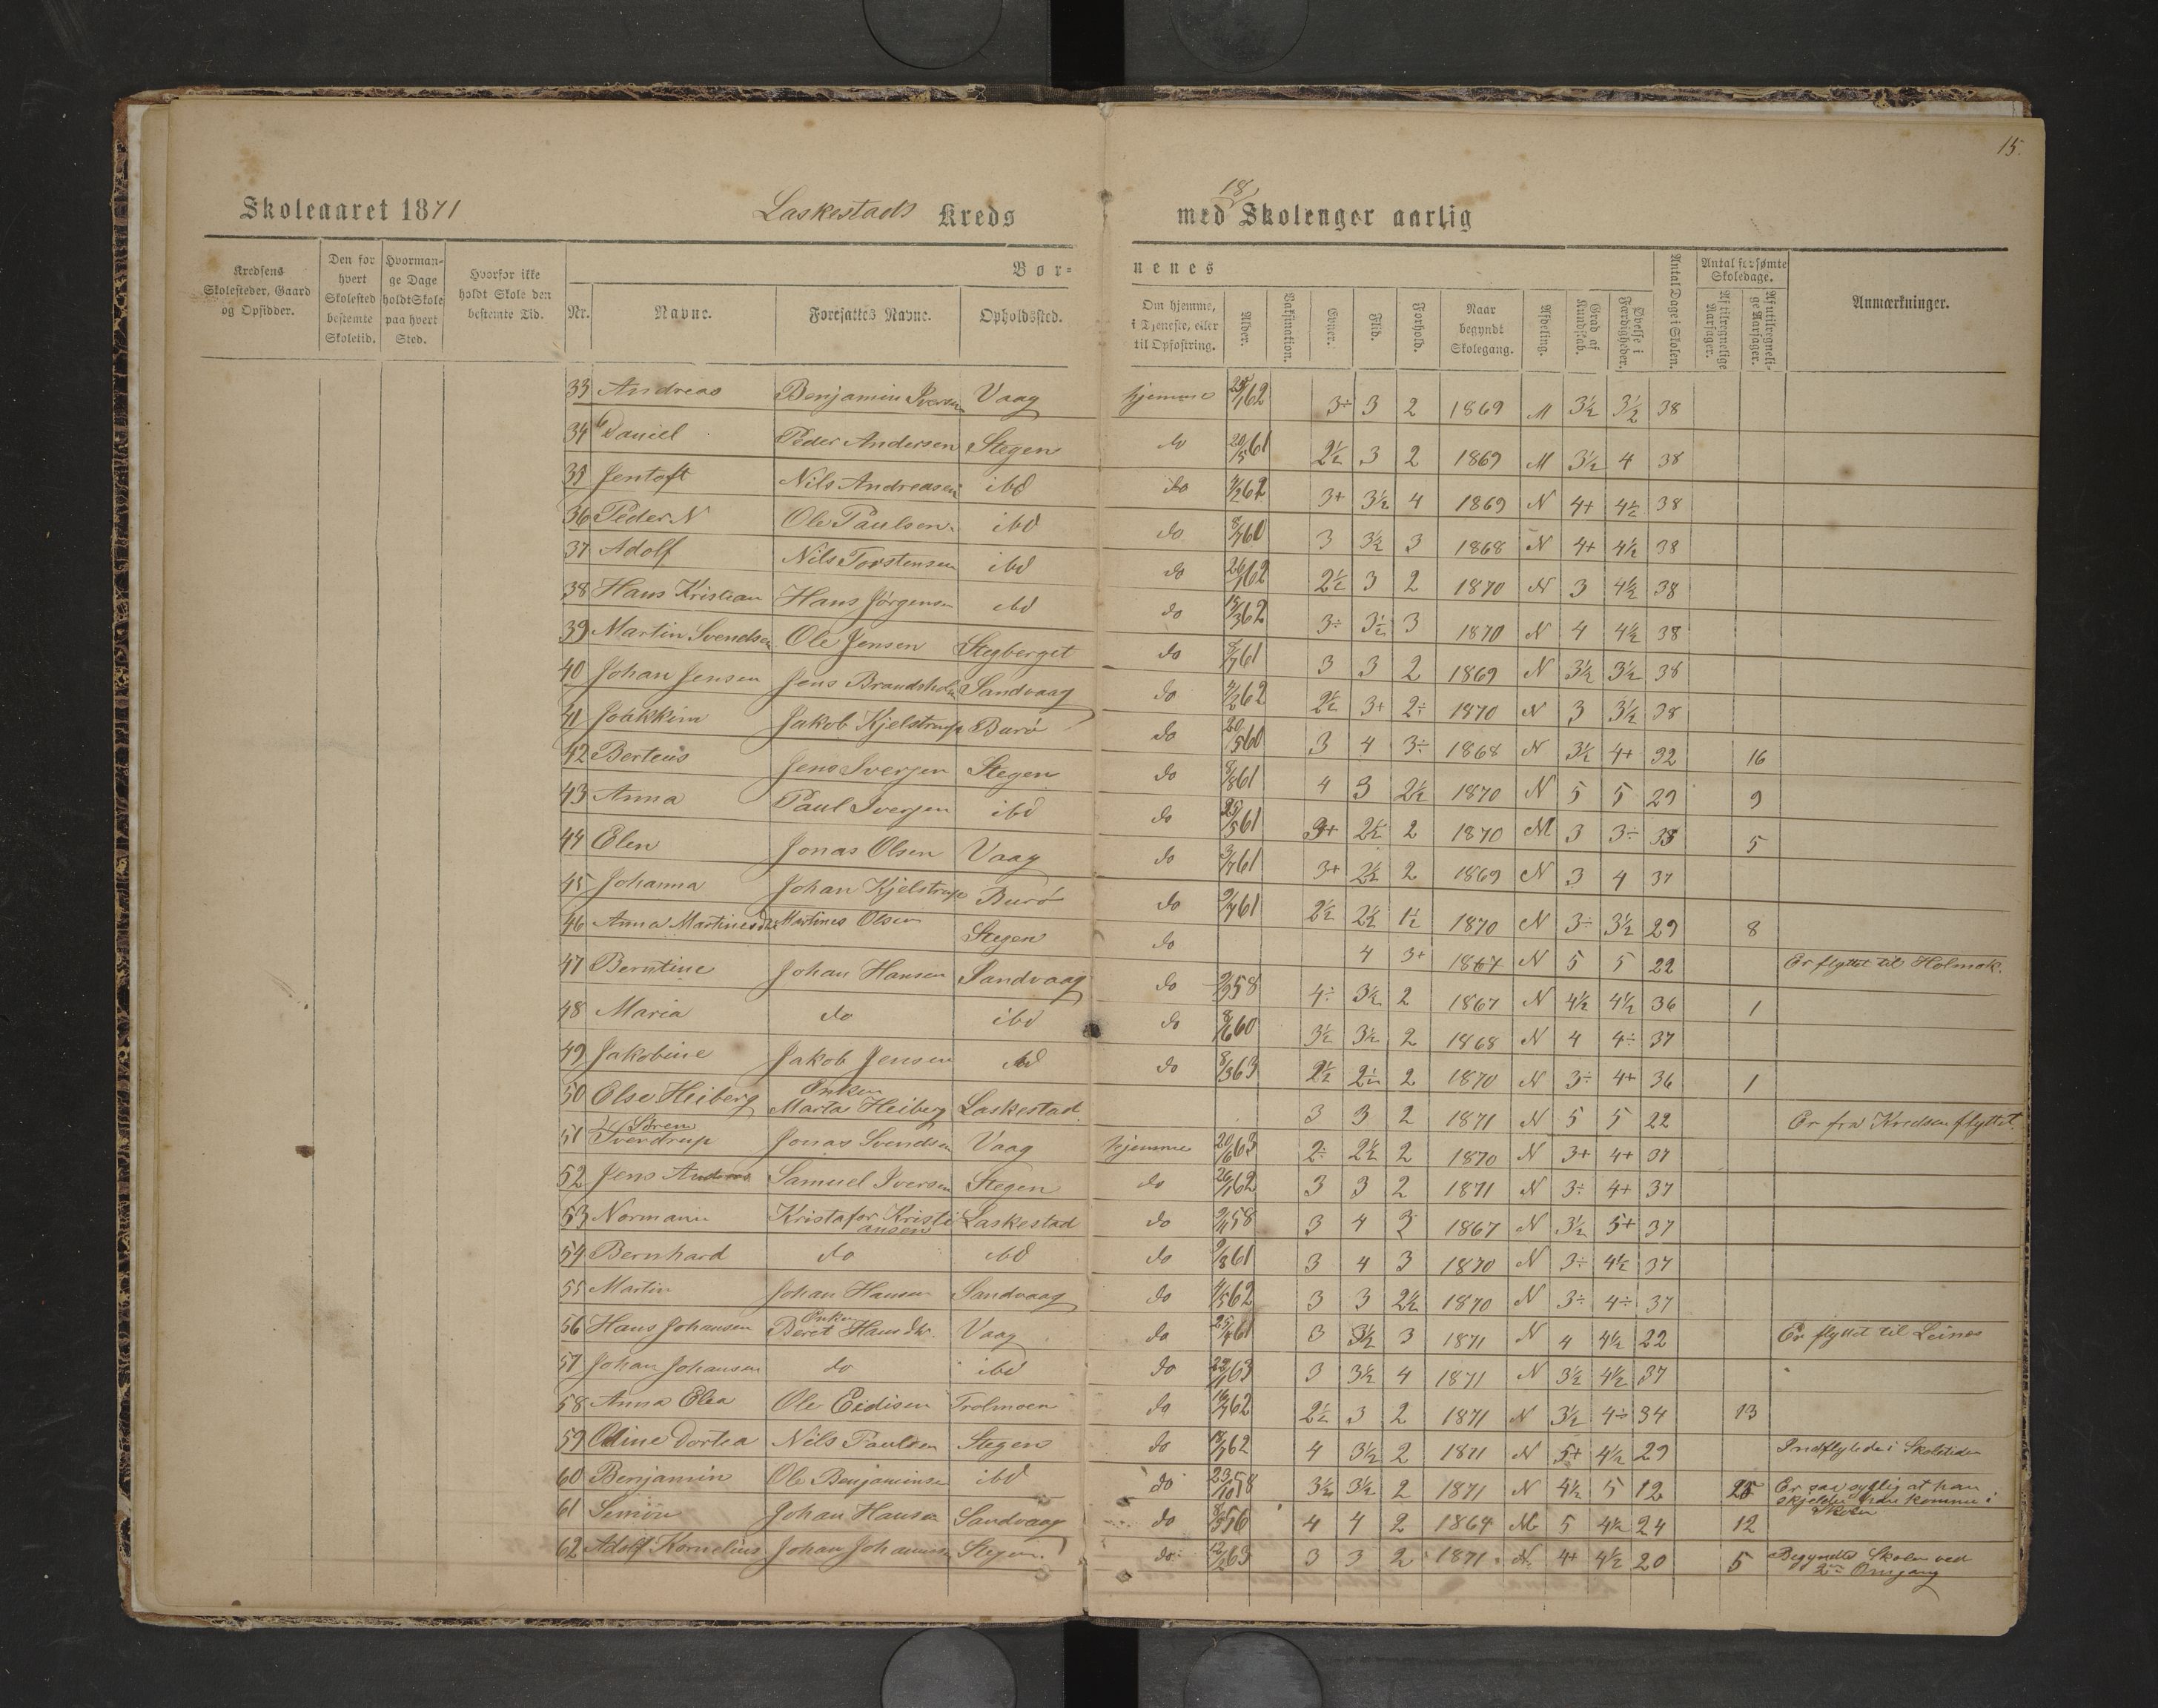 15.
Skoleaaret 1871 Laskestads Kreds med 18 Skolenger aarlig
Kredsens Skolesteder, Gaard og Opsidder.
Den for hvert Skolested bestemte Skoletid.
Hvormange Dage holdt Skole paa hvert Sted.
Hvorfor ikke holdt Skole den bestemte Tid.
Børnenes
Nr. Navne. Foresattes Navne. Opholdssted.
Om hjemme, i Tjeneste, eller til Opfostring.
Alder. Vaksination. Evner. Flid. Forhold.
Naar begyndt Skolegang.
Afdeling. Grad af Kundskab. Øvelse i Færdigheder. Antal Dage i Skolen.
Antal forsømte Skoledage.
Af tilregnelige Aarsager. Af utilregnelige Aarsager.
Anmærkninger.
33 Andreas Benjamin Iversen Vaag hjemme 62 3÷ 3 2 1869 M 3½ 3½ 38
34 Daniel Peder Andersen Stegen do 20/5 61 2½ 3 2 1869 M 3½ 4 38
35 Jentoft Nils Andreasen ibd do 62 3+ 3½ 4 1869 N 4+ 4½ 38
36 Peder N Ole Paulsen ibd do 8/7 60 3 3½ 3 1868 N 4+ 4½ 38
37 Adolf Nils Torstensen ibd do 26/1 62 2½ 3 2 1870 N 3 4½ 38
38 Hans Kristian Hans Jørgensen ibd do 15/3 62 3÷ 3½ 3 1870 N 4 4½ 38
39 Martin Svendsen Ole Jensen Stegberget do 61 3 3 2 1869 N 3½ 3½ 38
40 Johan Jensen Jens Brandsholm Sandvaag do 62 2½ 3+ 2÷ 1870 N 3 3½ 38
41 Joakkim Jakob Kjelstrup Burø do 20/5 60 3 4 3÷ 1868 N 3½ 4+ 32 16
42 Berteus Jens Iversen Stegen do 8/8 61 4 3 2½ 1870 N 5 5 29 9
43 Anna Paul Iversen ibd do 25/5 61 3+ 2½ 2 1870 M 3 3÷ 33 5
44 Elen Jonas Olsen Vaag do 3/7 61 3+ 2½ 2 1869 N 3 4 37
45 Johanna Johan Kjelstrup Burø do 9/7 61 2½ 2½ 1½ 1870 N 3÷ 3½ 29 8
46 Anna Martinesdtr Martines Olsen Stegen do 4 3+ 1867 N 5 5 22 Er flyttet til Holmok.
47 Berntine Johan Hansen Sandvaag do 9/9 58 4÷ 3½ 2 1867 N 4½ 4½ 36 1
48 Maria do ibd do 8/6 60 3½ 3½ 2 1868 N 4 4÷ 37
49 Jakobine Jakob Jensen ibd do 8/3 63 2½ 2½ 2 1870 N 3÷ 4+ 36 1
50 Else Heiberg Enken Marta Heiberg Laskestad 3 3 2 1871 N 5 5 22 Er fra Kredsen flyttet.
51 Søren Sverdrup Jonas Svendsen Vaag hjemme 20/6 63 2÷ 2½ 2 1870 N 3+ 4+ 37
52 Jens Andreas Samuel Iversen Stegen do 26/1 62 3 3 2 1871 N 3÷ 4+ 37
53 Normann Kristafor Kristiansen Laskestad do 58 3 4 3 1867 N 3½ 5+ 37
54 Bernhard do ibd do 9/8 61 3 4 3 1870 N 3÷ 4½ 37
55 Martin Johan Hansen Sandvaag do 4/5 62 3 3 2½ 1870 N 3÷ 4÷ 37
56 Hans Johansen Enken Beret Hansdtr. Vaag do 61 3 3½ 3 1871 N 4 4½ 22 Er flyttet til Leines
57 Johan Johansen do ibd do 63 3 3½ 4 1871 N 3½ 4½ 37
58 Anna Elea Ole Eidisen Trolmoen do 62 2½ 3 2 1871 N 3½ 4÷ 34 13
59 Oline Dortea Nils Paulsen Stegen do 62 4 3½ 2 1871 N 5+ 4½ 29 Indflyttede i Skoletiden
60 Benjamin Ole Benjaminsen ibd do 23/10 58 3½ 3½ 2 1871 N 4½ 5 12 25 Er saa syglig at han
skjelden kan komme i
Skolen
61 Simon Johan Hansen Sandvaag do 8/3 56 4 4 2 1864 M 5 4½ 24 12
62 Adolf Kornelius Johan Johannsen Stegen do 12/2 63 3 3 2 1871 N. 4+ 4½ 20 5 Begyndte Skolen ved
2den Omgang